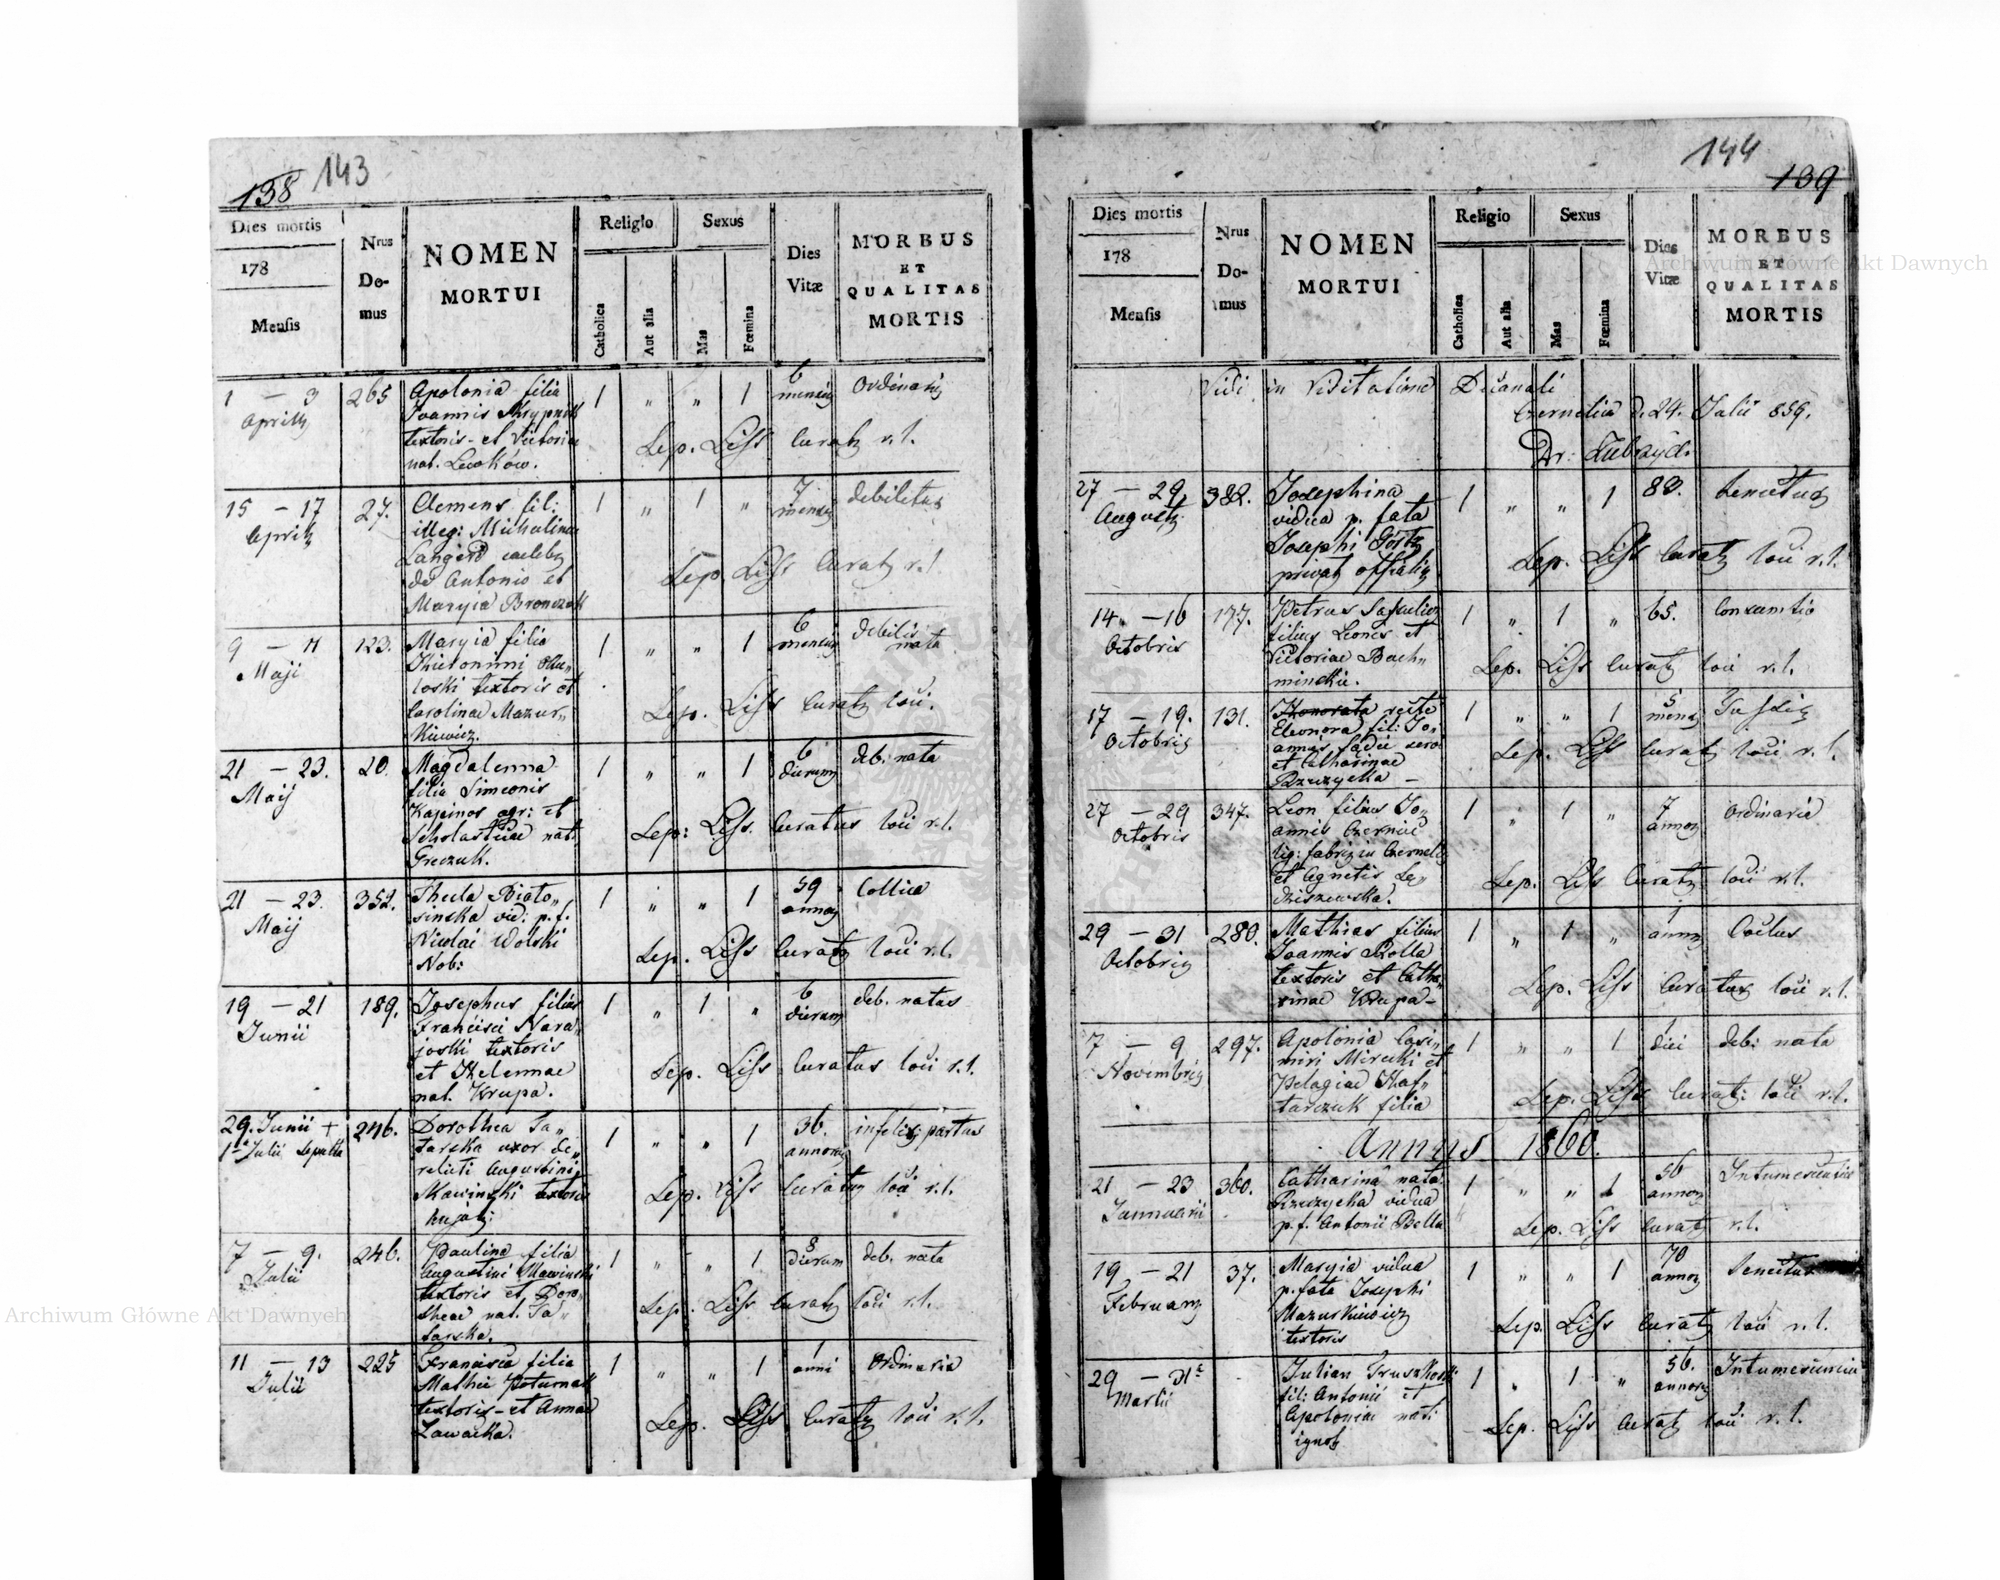 138 143
Dies mortis
178
Mensis
Nrus
Do-
mus
NOMEN
MORTUI
Religio
Catholica
Aut alia
Sexus
Mas
Fœmina
Dies
Vitæ
MORBUS
ET
QUALITAS
MORTIS
1 — 3
Aprilis
265
Apolonia filia
Joannis Skrypnik
textoris et Victoria
nat. Lewków.
1 „ „ 1
6
mensis
Ordinaria
Sep. Liss Curatg r. l.
15 — 17
Aprilis
27.
Clemens fil:
illeg: Michalina
Langerd caelebs
de Antonio et
Maryia Bronczak
1 „ 1 „
7
mensis
debilitas
Sep. Liss Curatg r. l.
9 — 11
Maji
123.
Maryia filia
Hieronimi
loski textoris et
Carolinae Mazur„
Kiewicz.
1 „ „ 1
6
mensis
debilis
nata
Sep. Liss Curatg loci.
21 — 23.
Maij
20.
Magdalenna
filia Simeonis
Kapinos agr: et
Scholasticae nat.
Greczuk.
1 „ „ 1
6
dierum
deb. nata
Sep: Liss. Curatus loci r. l.
21 — 23.
Maij
352.
Thecla Biało„
sinska vid: p. f.
Nicolai Wolski
Nob:
1 „ „ 1
59
annor
Collica
Sep. Liss Curatg loci r. l.
19 — 21
Junii
189.
Josephus filius
Francisci Nara„
joski textoris
et Helennae
nat. Krupa.
1 „ 1 „
6
dierum
deb. natus
Sep. Liss Curatus loci r. l.
29. Junii +
1a Julii sepulta
246.
Dorothea Ta„
tarska uxor de„
relicti Augustini
Mawinski textoris
1 „ „ 1
36.
annorum
infelix partus
Sep. Liss Curatus loci r. l.
7 — 9.
Julii
246.
Paulina filia
Augustini Mawinski
textoris et Doro„
theae nat. Ta„
tarska.
1 „ „ 1
8
dierum
deb. nata
Sep. Liss Curatg loci r. l.
11 — 13
Julii
225
Francisca filia
Mathei Poturnak
textoris et Annae
Zawacka.
1 „ „ 1
1
anni
Ordinaria
Sep. Liss Curatg loci r. l.
144
139
Dies mortis
178
Mensis
Nrus
Do-
mus
NOMEN
MORTUI
Religio
Catholica
Aut alia
Sexus
Mas
Fœmina
Dies
Vitæ
MORBUS
ET
QUALITAS
MORTIS
Vidi in Visitatione Decanali
d. 24. Julii 859.
27 — 29
Augusti
382.
Josephina
vidua p. fata
Josephi Görtz
privat officialis
1 „ „ 1
83.
Senectus
Sep. Liss Curatg loci r. l.
14 — 16
Octobris
177.
Petrus
filius Leonis et
Victoriae Bach„
minskie.
1 „ 1 „
65.
Consumtio
Sep. Liss Curatg loci r. l.
17 — 19.
Octobris
131.
Honorata recte
Eleonora fil: Jo„
annis
et Catharinae
Rzuzycka —
1 „ „ 1
5
mens
Sep. Liss Curatg loci r. l.
27 — 29
Octobris
347.
Leon filius Jo„
annis
et Agnetis Le„
dziszewska.
1 „ 1 „
7
annor
Ordinaria
Sep. Liss Curatg loci r. l.
29 — 31
Octobris
280.
Mathias filius
Joannis Rolla
textoris et Catha„
rinae Krupa —
1 „ 1 „
1
anni
Sep. Liss Curatus loci r. l.
7 — 9
Novembris
297.
Apolonia Casi„
miri Mirecki et
Pelagiae Haf„
tarczuk filia
1 „ „ 1
1
diei
deb: nata
Sep. Liss Curat: loci r. l.
Annus 1860.
21 — 23
Januarii
360.
Catharina nata
Rzuzycka vidua
p. f. Antonii Bella
1 „ „ 1
56
annor
Intumescentia
Sep. Liss Curatg r. l.
19 — 21
Februarii
37.
Maryia vidua
p. fata Josephi
Mazurkiewicz
textoris
1 „ „ 1
70
annor
Senectus
Sep. Liss Curatg loci r. l.
29 — 31
Martii
Julian Truszkoski
fil: Antonii et
Apoloniae nat:
ignot
1 „ 1 „
56.
annor
Intumescencia
Sep. Liss Curatg loci r. l.
Archiwum Główne Akt Dawnych
Archiwum Główne Akt Dawnych